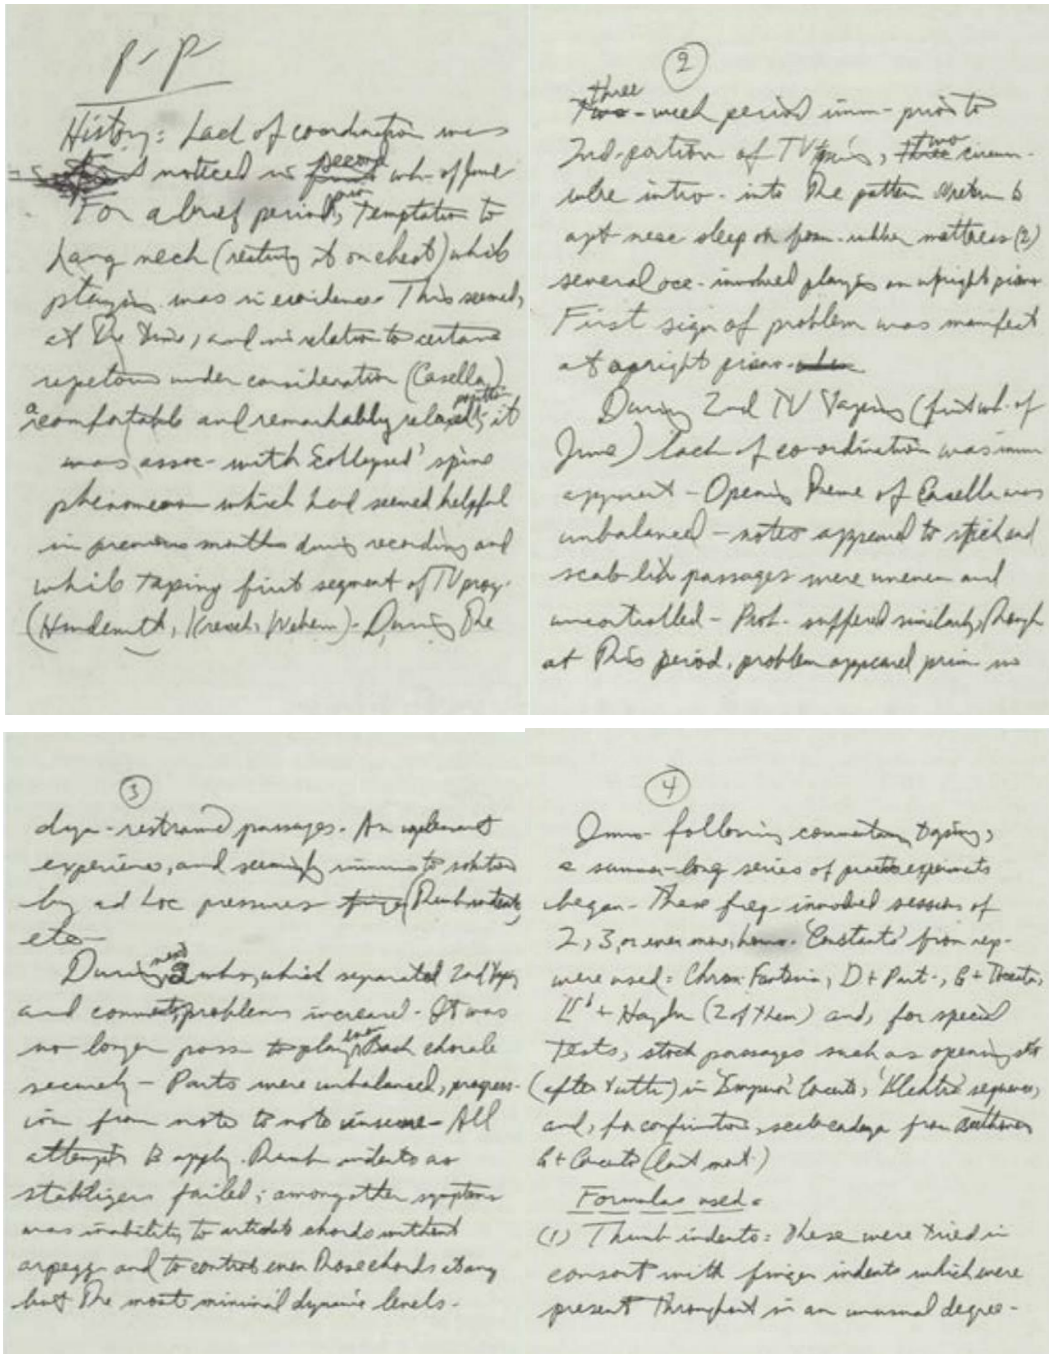 p-p
History: Lack of coordination was
noticed in first second wk. of June
For a brief period, prior, temptation to
hang neck (resting it on chest) while
playing was in evidence. This seemed,
at the time, and in relation to certain
repetoire under consideration (Casella)
a comfortable and remarkably relaxed position; it
was assoc- with 'collapsed' spine
phenomenon which had seemed helpful
in previous months during recording and
while taping first segment of TV prog.
(Hindemith, Krenek, Webern). During the
2
Two three-week period imm- prior to
2nd portion of TV taping, three two circum.
were intro- into the pattern
apt sleep on foam-rubber mattress (2)
several occ- involved playing on upright piano
First sign of problem was manifest
at upright piano. when
During 2nd TV Taping (first wk. of
June) lack of co-ordination was imm
apparent - Opening theme of Casella was
unbalanced - notes appeared to stick and
scale-like passages were uneven and
uncontrolled - Prok. suffered similarly, though
at this period, problem appeared prim in
3
dyn-restrained passages. An unpleasant
experience, and seemingly immune to solution
by ad hoc pressures (thumb indents,
etc-
During next 2 wks, which separated 2nd taping
and problems increased. It was
no longer poss to play even Bach chorale
securely - Parts were unbalanced, progress-
ion from note to note insecure - All
attempts to apply thumb indents as
stabilizers failed; among other symptoms
was inability to articulate chords without
arpegg- and to control even those chords at any
but the most minimal dynamic levels.
4
Imm- following commentary taping,
a summer-long series of practice experiments
began. These freq- involved sessions of
2, 3, or even more, hours. 'Constants' from rep-
were used: Chrom. Fantasia, D+ Part-, G+ Toccata,
Eb+ Haydn (2 of them) and, for special
tests, stock passages such as opening
(after tutti) in 'Emperor' Concerto, 'Elektra' sequences,
and, for confirmation, scale cadenza from Beethoven
G+ Concerto (last mvt.)
Formulas used:
(1) Thumb indents: These were tried in
consort with finger indents which were
present throughout in an unusual degree.